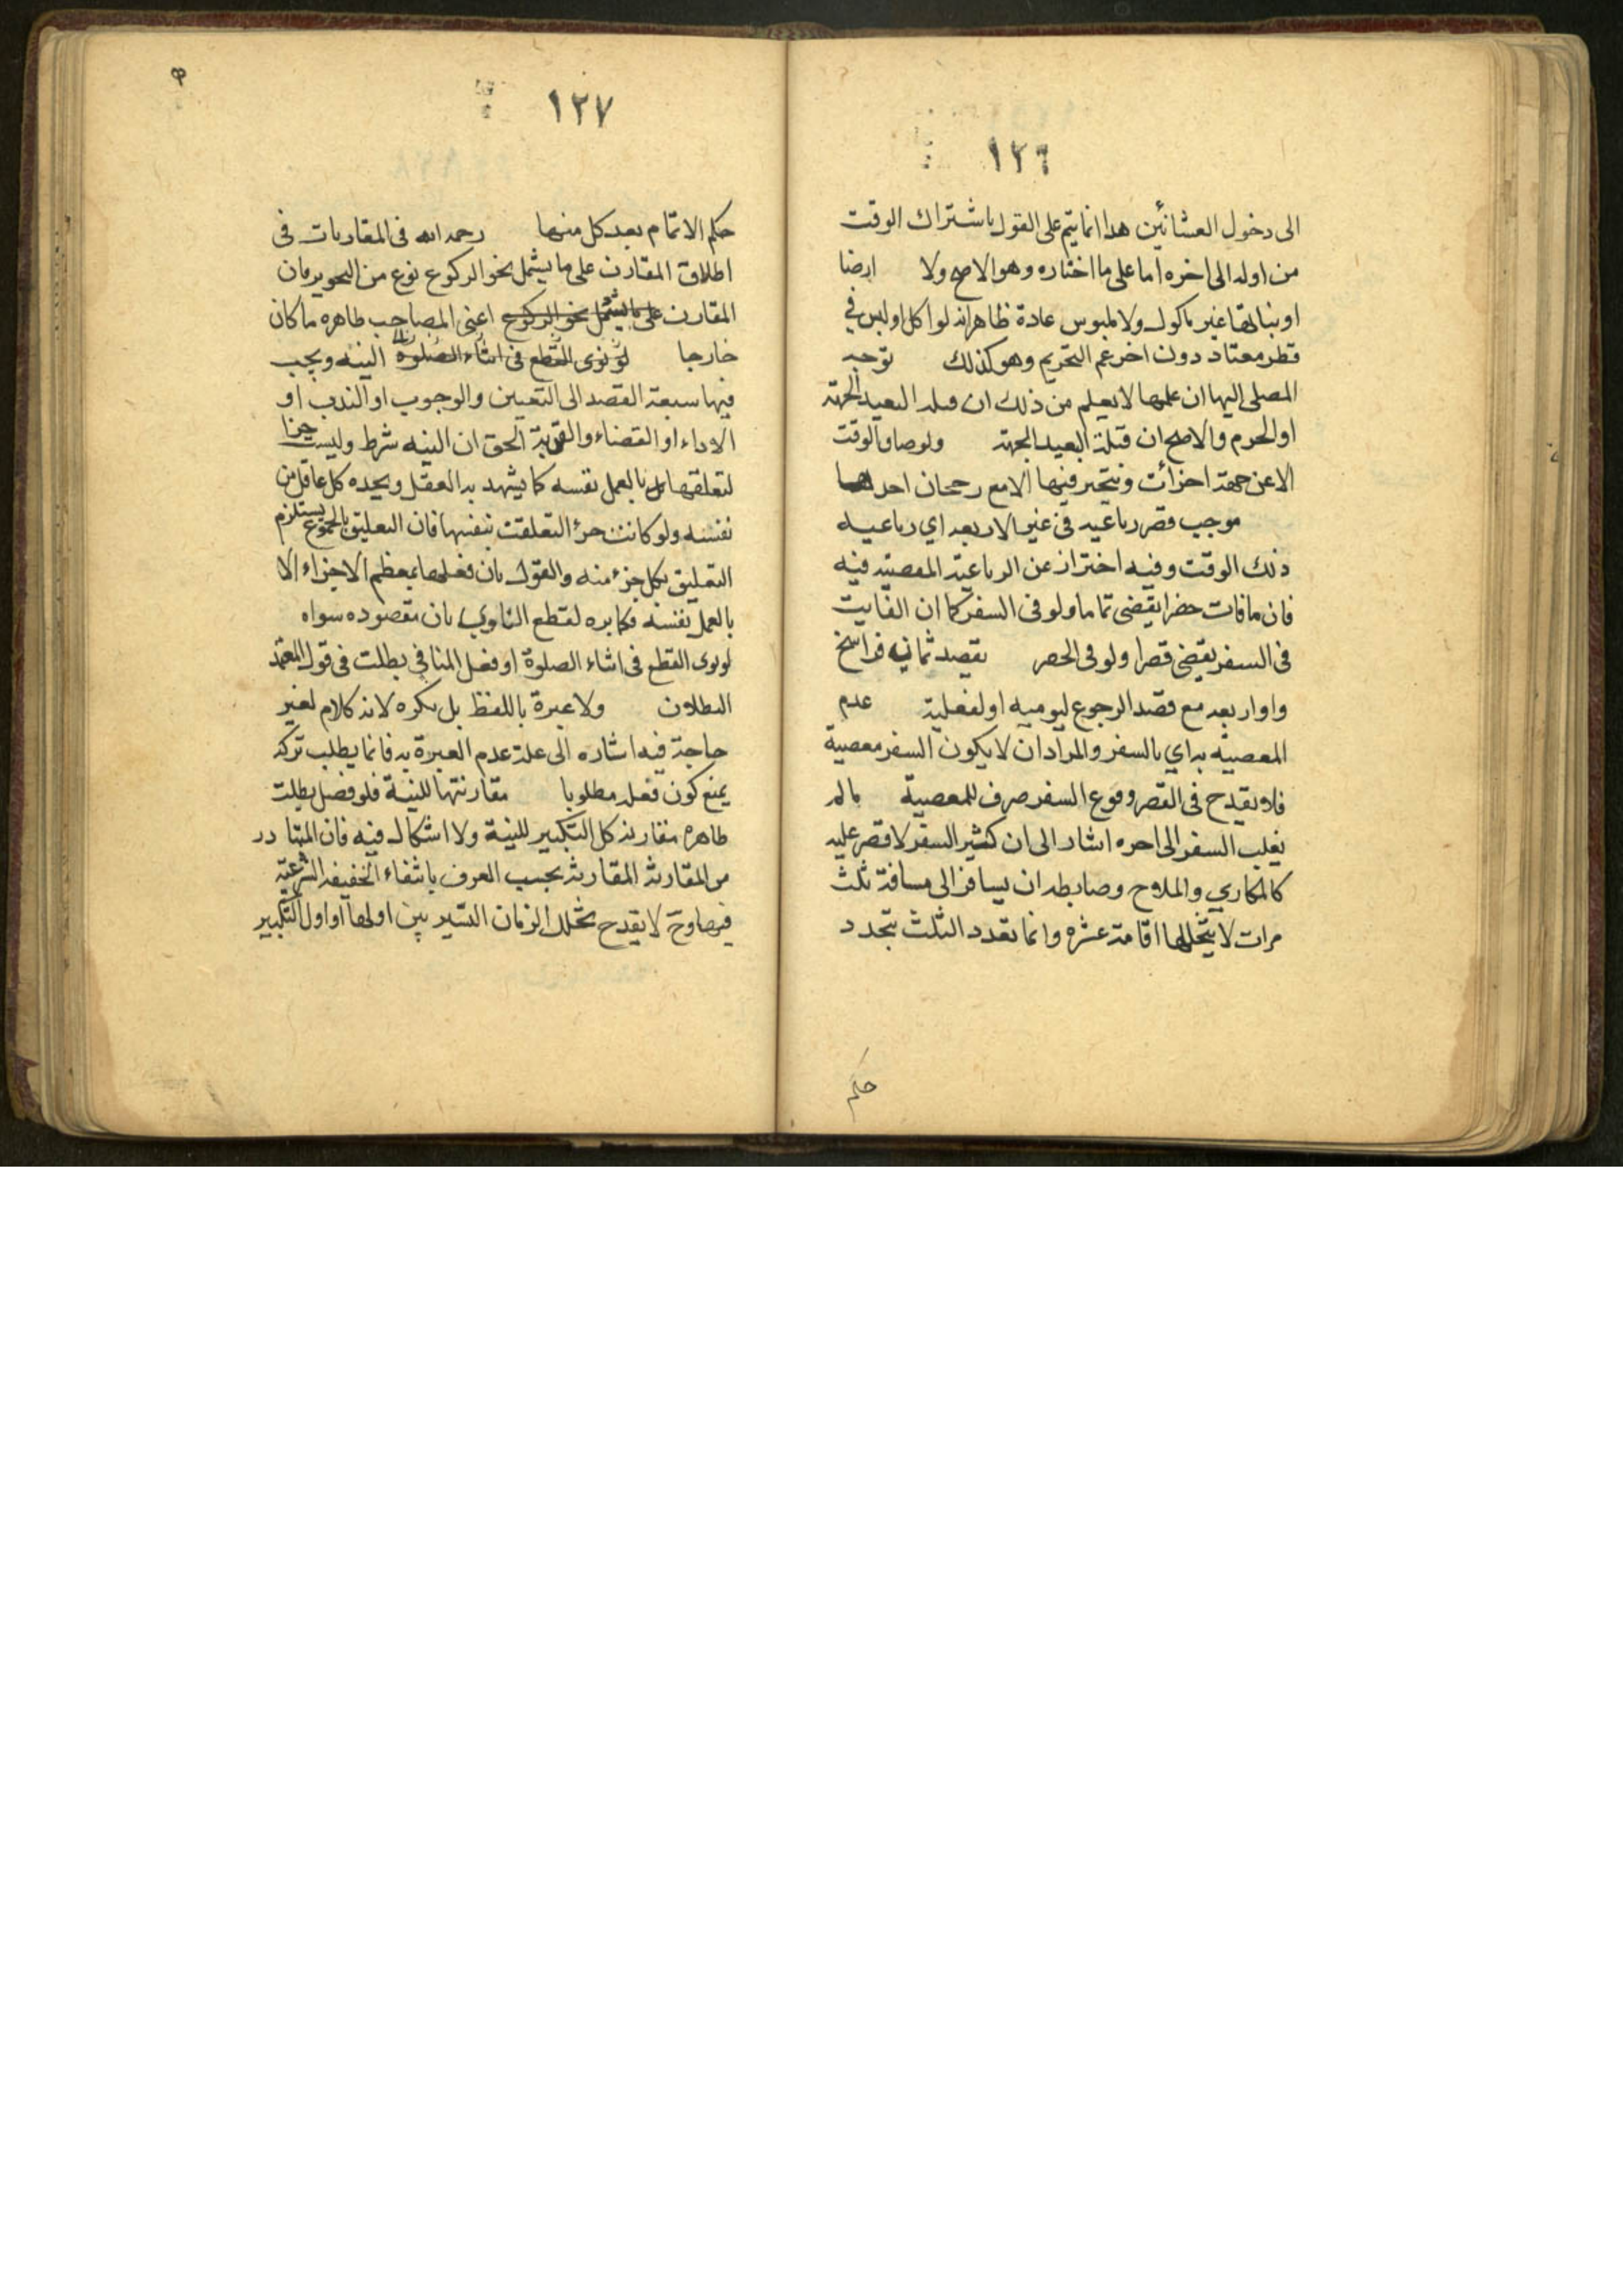 ١٢٦
الى دخول العشائين هدا انما يتم على القول باشتراك الوقت
من اوله الى اخره اما على ما اختاره وهو الاصح ولا ارضا
او نباتها غير ماكول ولا ملبوس عادة ظاهرانه لو اكل او لبس في
قطر معتاد دون اخر عم التحريم وهو كذلك توجه
المصلى اليها ان علمها لا يعلم من ذلك ان قبله البعيد الجهة
او الحرم والاصح ان قبلة البعيد الجهة ولو ضاق الوقت
الا عن جهة اجزأت ويتخير فيها الا مع رجحان احدها
موجب قصر رباعيه فى غير الاربعه اي رباعيه
ذلك الوقت وفيه احتراز عن الرباعية المقضية فيه
فان ما فات حضرا يقضى تماما ولو فى السفر كما ان الفايت
فى السفر يقضى قصرا ولو فى الحصر بقصد ثمانيه فراسخ
واو اربعه مع قصد الرجوع ليوميه او لفعلية عدم
المعصيه به اي بالسفر والمراد ان لا يكون السفر معصية
فلا يقدح فى القصر وقوع السفر صرف للمعصية مالم
يغلب السفر الى احره اشار الى ان كثير السفر لا قصر عليه
كالمكاري والملاح وضابطه ان يسافر الى مسافة ثلث
مرات لا يتخللها اقامة عشره وانما تعدد الثلث بتجدد
حكم
١٢٧
حكم الاتمام بعد كل منها رحمه الله فى المقاربات فى
اطلاق المقارن على ما يشمل نحو الركوع نوع من التجوير فان
المقارن على ما يشمل نحو الركوع اعنى المصاحب ظاهره ما كان
خارجا لو نوى القطع فى اثناء الصلوة النيه ويجب
فيها سبعة القصد الى التعيين والوجوب او الندب او
الاداء او القضاء والقربة الحق ان النيه شرط وليست جزا
لتعلقها بالعمل نفسه كما يشهد به العقل ويجده كل عاقل من
نفسه ولو كانت جزأ لتعلقت بنفسها فان التعليق بالمجموع يستلزم
التعليق بكل جزء منه والقول بان فعلها بمعظم الاجزاء الا
بالعمل نفسه مكابره لقطع الناوي بان مقصوده سواه
لو نوى القطع فى اثناء الصلوة او فعل المنافي بطلت فى قول المعتمد
البطلان ولا عبرة باللفظ بل يكره لانه كلام لغير
حاجة فيه اشاره الى علة عدم العبرة به فانما يطلب تركه
يمنع كون فعله مطلوبا مقارنتها للنية فلو فصل بطلت
ظاهره مقارنة كل التكبير للنية ولا اشكال فيه فان المتبادر
من المقارنة المقارنة بحسب العرف بانتفاء الخفيفة الشرعية
لا يقدح تخلل الزمان اليسير بين اولها او اول التكبير